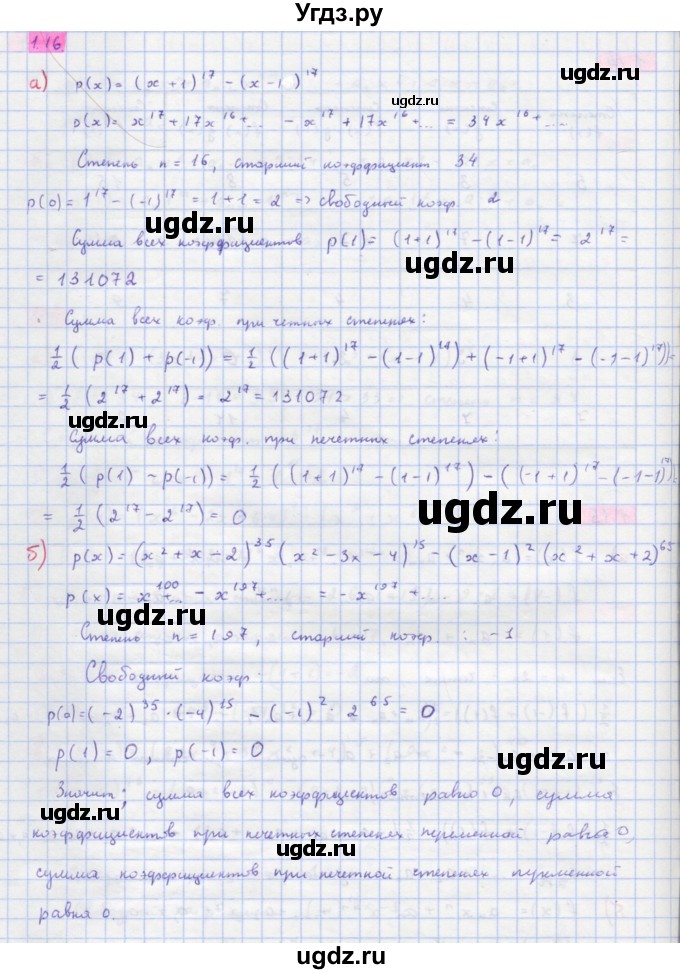 Угдз.ру
1.16
а) p(x) = (x+1)^17 − (x−1)^17
p(x) = x^17 + 17x^16 + … − x^17 + 17x^16 + … = 34x^16 + …
Степень n = 16, старший коэффициент 34
p(0) = 1^17 − (−1)^17 = 1+1 = 2 => свободный коэф. 2
ugdz.ru ugdz.ru
Сумма всех коэффициентов p(1) = (1+1)^17 − (1−1)^17 = 2^17 =
= 131072
Сумма всех коэф. при четных степенях:
1/2 ( p(1) + p(−1)) = 1/2 ((1+1)^17 − (1−1)^17) + (−1+1)^17 − (−1−1)^17)) =
= 1/2 (2^17 + 2^17) = 2^17 = 131072
ugdz.ru ugdz.ru
Сумма всех коэф. при нечетных степенях:
1/2 ( p(1) − p(−1)) = 1/2 ((1+1)^17 − (1−1)^17) − ((−1+1)^17 − (−1−1)^17)) =
= 1/2 (2^17 − 2^17) = 0
ugdz.ru
б) p(x) = (x² + x − 2)^35 (x² − 3x − 4)^15 − (x − 1)² (x² + x + 2)^65
p(x) = x^100 + … − x^197 + … = − x^197 + …
ugdz.ru
Степень n = 197, старший коэф. : −1
Свободный коэф.
ugdz.ru
p(0) = (−2)^35 · (−4)^15 − (−1)² · 2^65 = 0
p(1) = 0, p(−1) = 0
ugdz.ru
Значит, сумма всех коэффициентов равно 0, сумма
коэффициентов при нечетных степенях переменной равна 0,
ugdz.ru ugdz.ru
сумма коэффициентов при нечетной степенях переменной
равна 0.
ugdz.ru